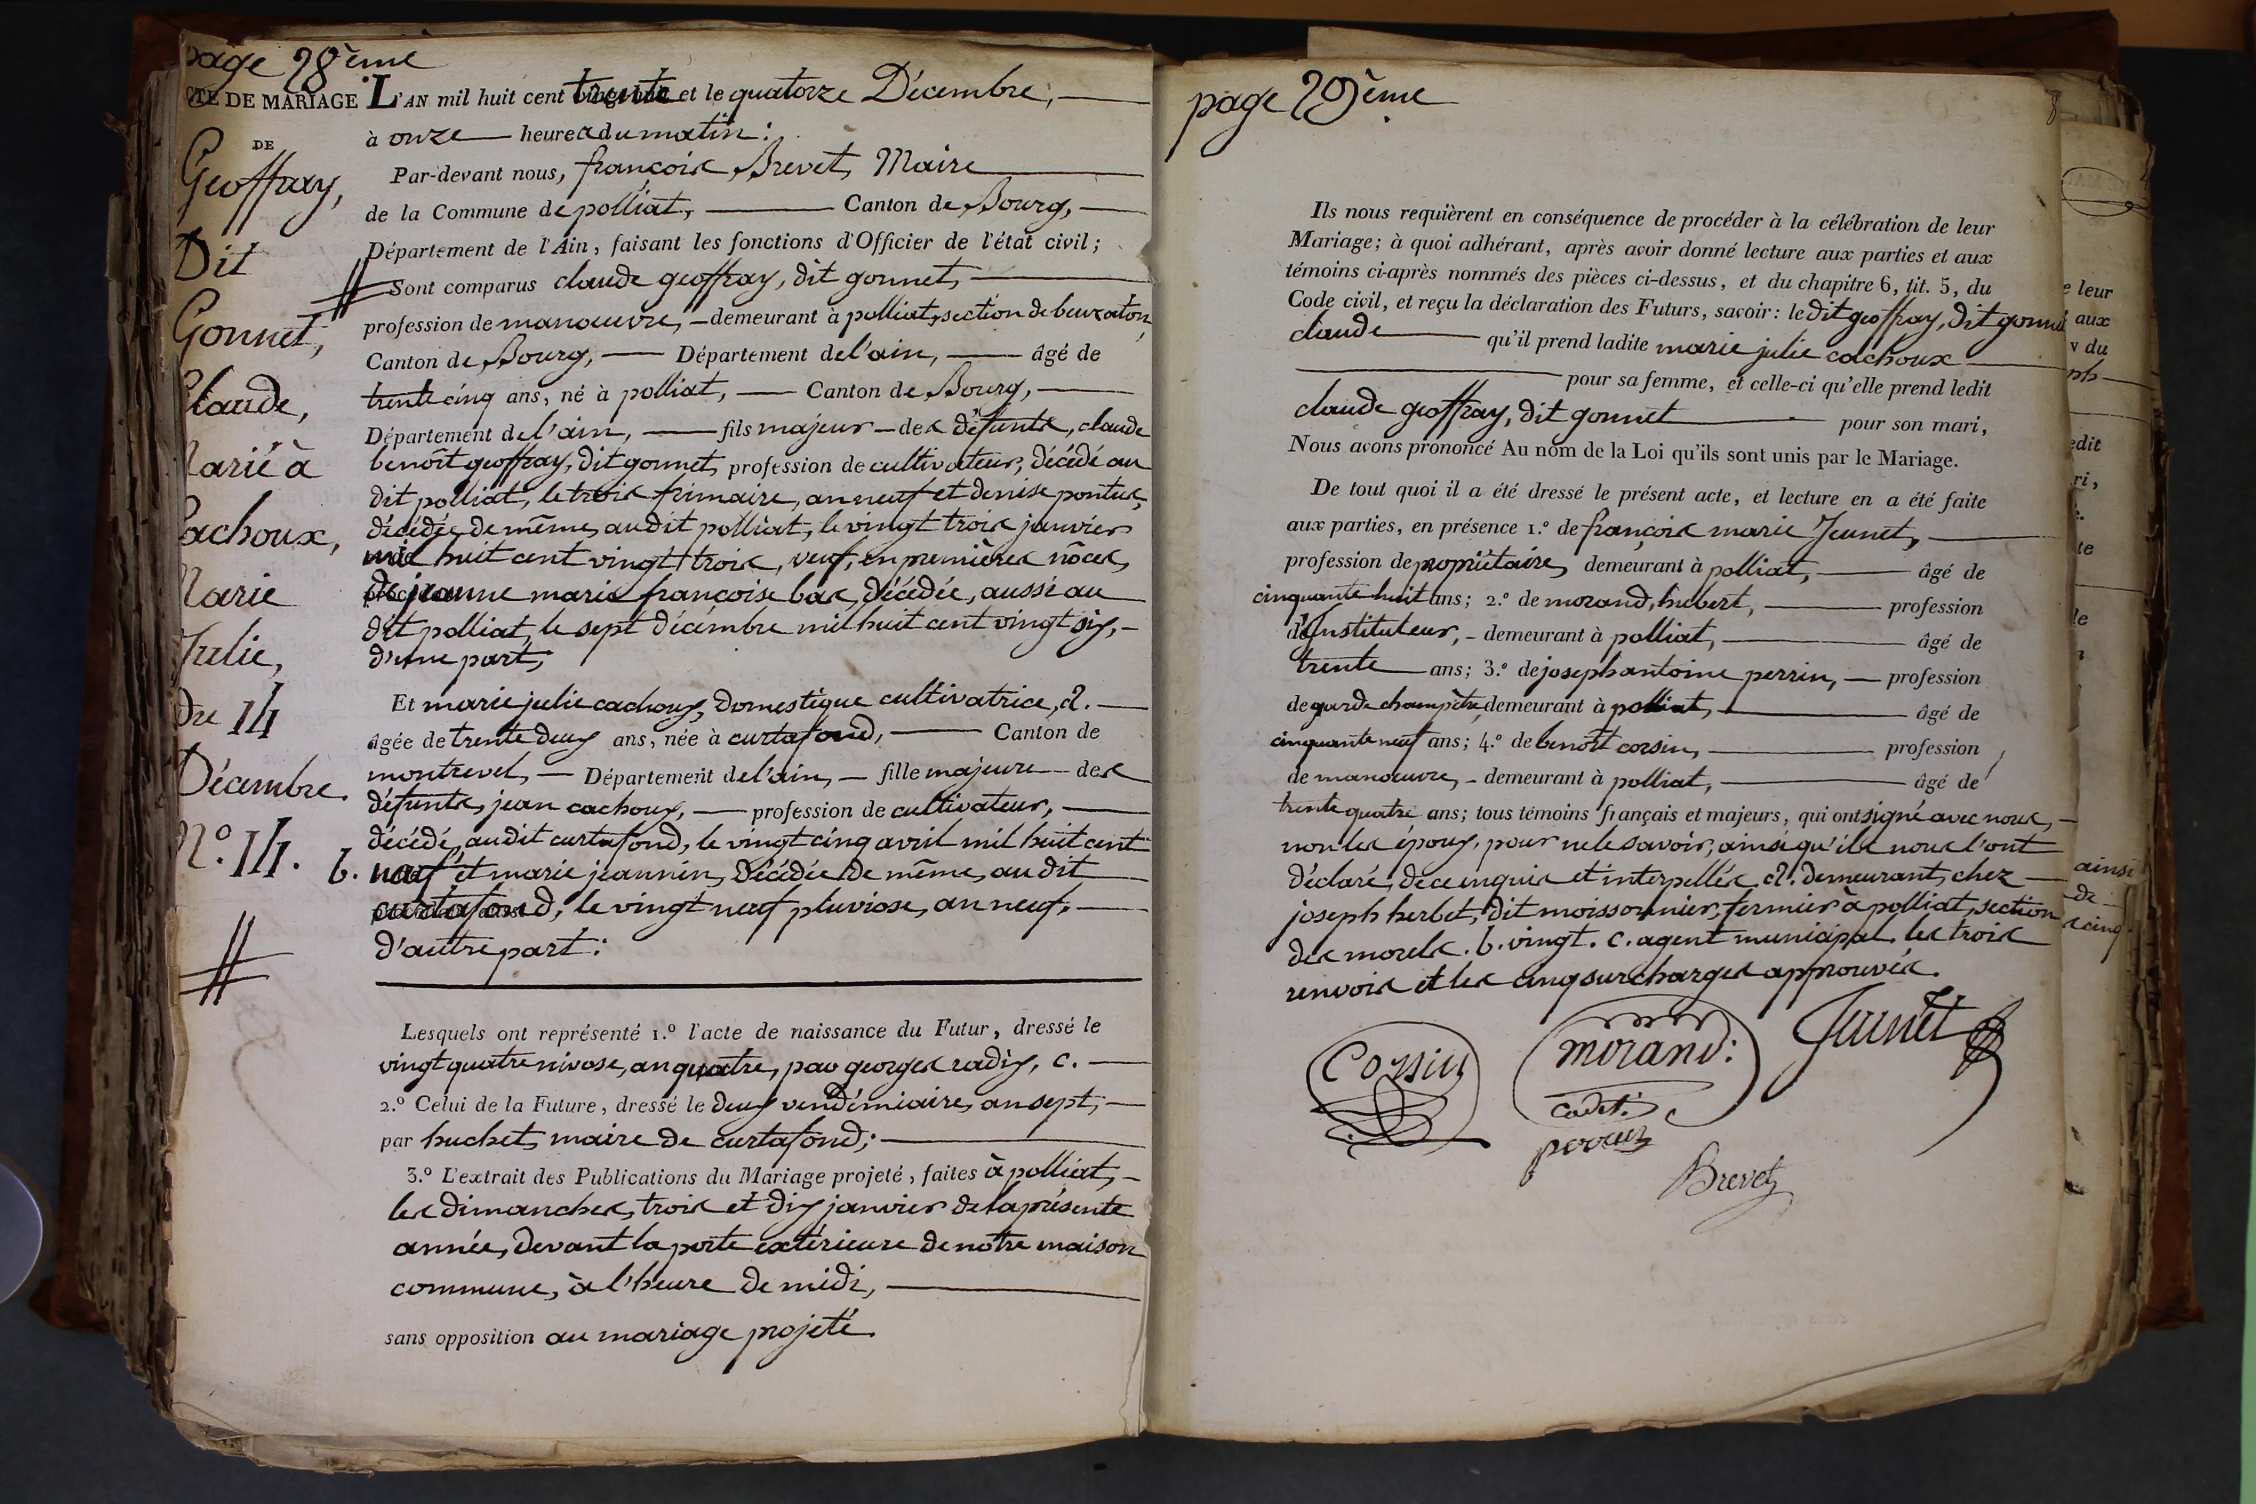 page 28ème
CTE DE MARIAGE
DE
Geoffray,
Dit
Gonnet,
Claude,
Marié à
Cachoux,
Marie
Julie,
du 14
Décembre.
N.o 14.
L'AN mil huit cent trente et le quatorze Décembre,
à onze heures du matin:
Par-devant nous, françois Brevet, Maire
de la Commune de polliat, Canton de Bourg,
Département de l'Ain, faisant les fonctions d'Officier de l'état civil;
Sont comparus claude geoffray, dit gonnet,
profession de manœuvre, demeurant à polliat, section de beuvaton,
Canton de Bourg, Département de l'ain, âgé de
trente cinq ans, né à polliat, Canton de Bourg,
Département de l'ain, fils majeur des défunts, claude
benoît geoffray, dit gonnet, profession de cultivateur, décédé au
dit polliat, le trois frimaire, an neuf et denise pontus,
décédée de même, au dit polliat, le vingt trois janvier
mil huit cent vingt trois, veuf, en premières nôces,
de jeanne marie françoise bas, décédée, aussi au
dit polliat, le sept décembre mil huit cent vingt six,
d'une part,
Et marie julie cachoux, domestique cultivatrice, a.
âgée de trente deux ans, née à curtafond, Canton de
montrevel, Département de l'ain, fille majeure des
défunts, jean cachoux, profession de cultivateur,
décédé, au dit curtafond, le vingt cinq avril mil huit cent
b. neuf et marie jeannin, décédée de même, au dit
curtafond, le vingt neuf pluviose, an neuf,
d'autre part:
Lesquels ont représenté 1.o l'acte de naissance du Futur, dressé le
vingt quatre nivose, an quatre, par georges radix, c.
2.o Celui de la Future, dressé le deux vendémiaire, an sept,
par huchet, maire de curtafond;
3.o L'extrait des Publications du Mariage projeté, faites à polliat,
les dimanches, trois et dix janvier de la présente
année, devant la porte extérieure de nôtre maison
commune, à l'heure de midi,
sans opposition au mariage projeté.
page 29ème
Ils nous requièrent en conséquence de procéder à la célébration de leur
Mariage; à quoi adhérant, après avoir donné lecture aux parties et aux
témoins ci-après nommés des pièces ci-dessus, et du chapitre 6, tit. 5, du
Code civil, et reçu la déclaration des Futurs, savoir: le dit geoffray, dit gonnet
claude qu'il prend ladite marie julie cachoux
pour sa femme, et celle-ci qu'elle prend ledit
claude geoffray, dit gonnet pour son mari,
Nous avons prononcé Au nom de la Loi qu'ils sont unis par le Mariage.
De tout quoi il a été dressé le présent acte, et lecture en a été faite
aux parties, en présence 1.o de françois marie Jeunet,
profession de propriétaire, demeurant à polliat, âgé de
cinquante huit ans; 2.o de morand, hubert, profession
d'instituteur, demeurant à polliat, âgé de
trente ans; 3.o de joseph antoine perrin, profession
de garde champêtre, demeurant à polliat, âgé de
cinquante neuf ans; 4.o de benoît corsin, profession
de manœuvre, demeurant à polliat, âgé de
trente quatre ans; tous témoins français et majeurs, qui ont signé avec nous,
non les époux, pour ne le savoir, ainsi qu'ils nous l'ont
déclaré, de ce enquis et interpellés. a. demeurant, chez
joseph herbet, dit moissonnier, fermier à polliat, section
des morels. b. vingt. c. agent municipal. les trois
renvois et les cinq surcharges approuvés.
Corsin
morand:
cadet.
Jeunet
perrin
Brevet
e leur
aux
v du
ph
edit
ri,
te
le
ainsi
de
s cinq